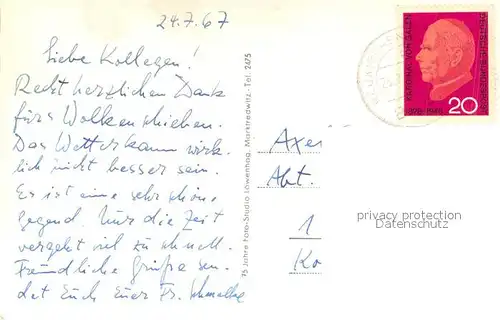 24.7.67
Liebe Kollegen!
Recht herzlichen Dank
fürs Wolkenschieben.
Das Wetter kann wirk-
lich nicht besser sein.
Es ist eine sehr schöne
Gegend. Nur die Zeit
vergeht viel zu schnell.
Freundliche Grüße sen-
det Euch Eure Fr.
75 Jahre Foto-Studio Löwenhag, Marktredwitz - Tel. 2475
KARDINAL VON GALEN
1878-1946
DEUTSCHE BUNDESPOST
20
Abt.
1
privacy protection
Datenschutz